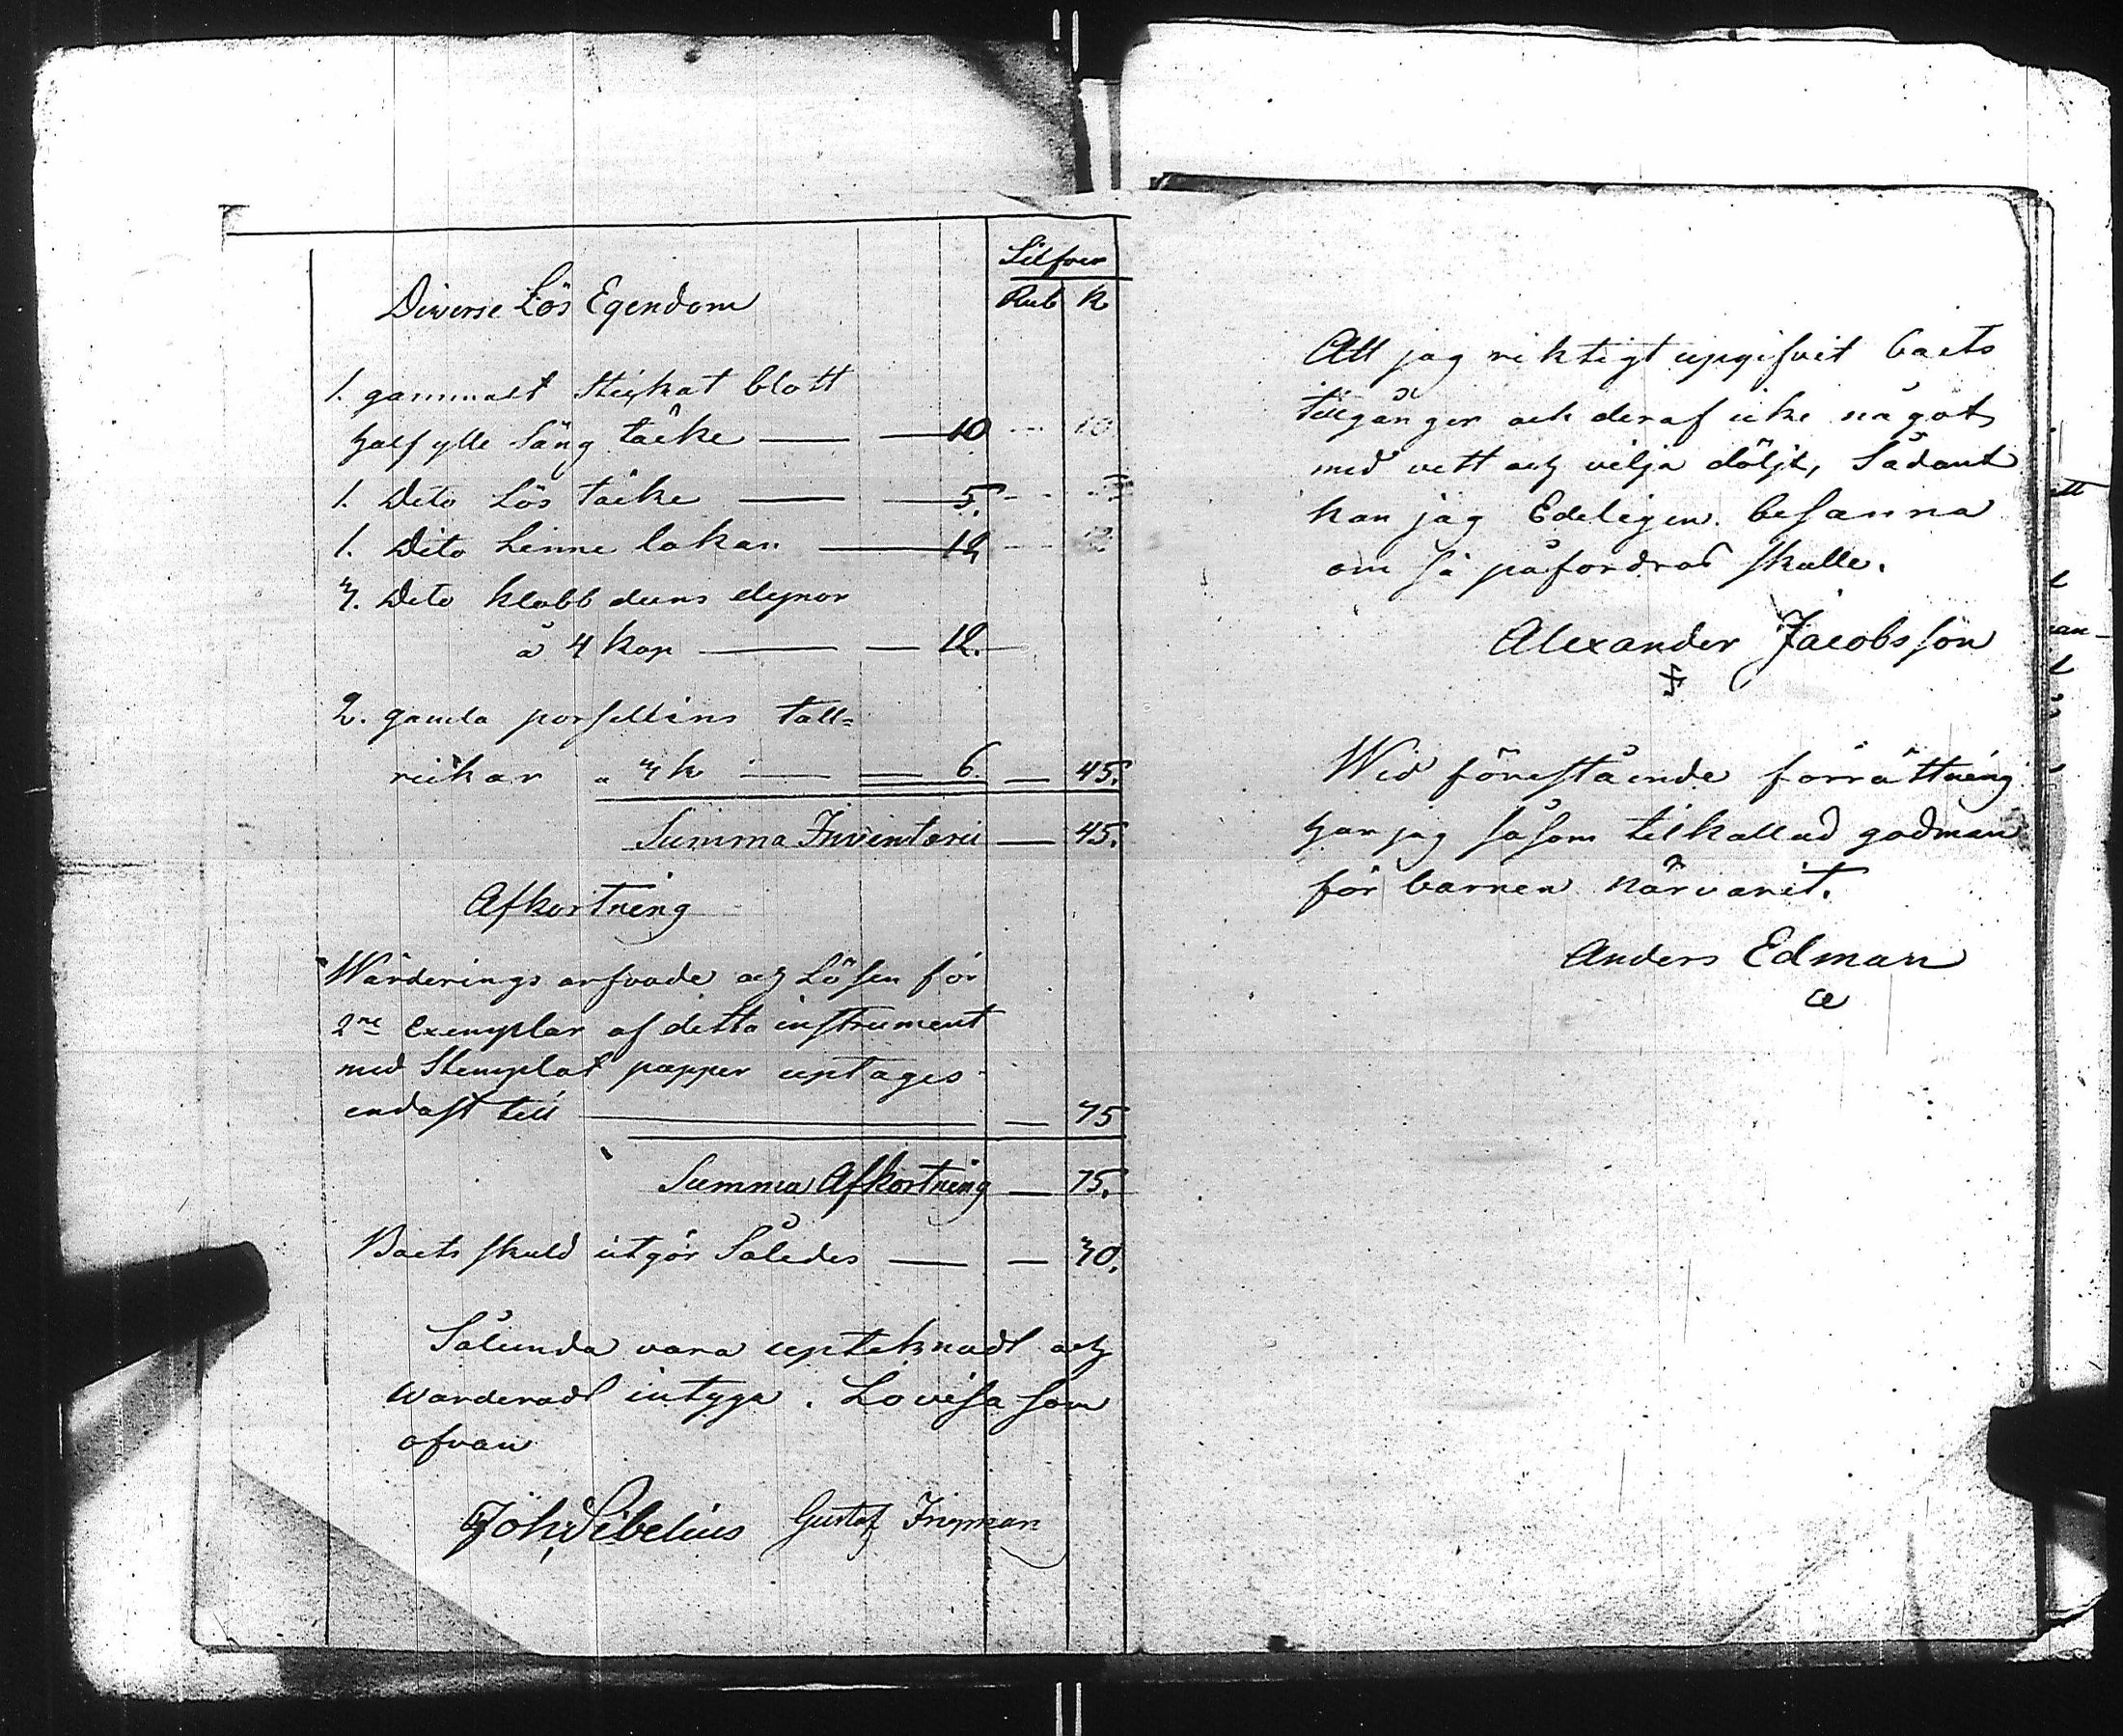 Silfver
Rub K
Diverse Lös Egendom
1. gammalt Stickat blott
half ylle Säng täcke — — 10
1. Dito Lös täcke — — 5.
1. Dito Linne lakan — 12
3. Dito klabb duns dynor
à 4 kop — — 12.
2. gamla porsellins tall=
rickar " 3 k — — 6. — 45.
Summa Inventarii — 45.
Afkortning
Wärderings arfvode och Lösen för
2ne Exemplar af detta instrument
med Stemplat papper uptages
endast till — — 75
Summa Afkortning — 75.
Boets skuld utgör Således — — 30.
Sålunda vara upteknadt och
Warderadt intyga. Lovisa som
ofvan
Joh, Sibelius Gustaf Ingman
Att jag riktigt uppgifvit boets
tillgångar och deraf icke något
med vett och vilja döljt, Sådant
kan jag Edeligen besanna
om så påfordras skulle.
Alexander Jacobsson
Wid förestående förrättning
har jag såsom tilkallad godman
för barnen närvarit.
Anders Edman